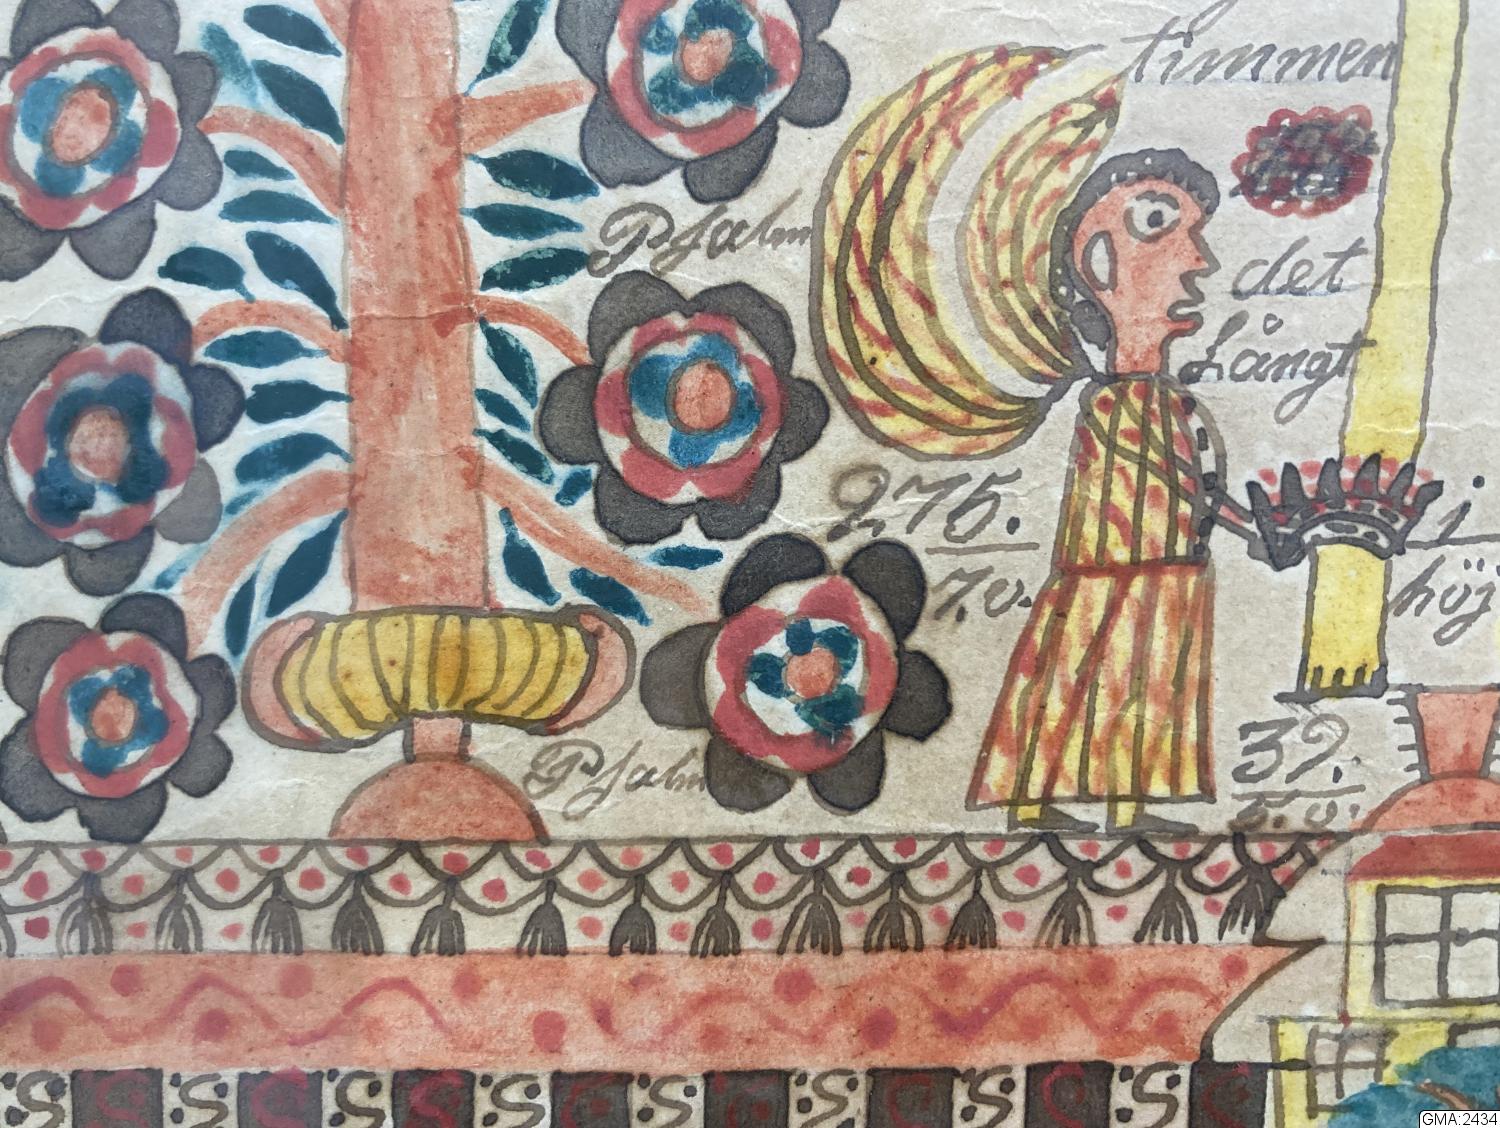 timmen
Psalm
det
Långt
275.
7.v.
i
höj
Psalm
39.
5.v.
GMA:2434